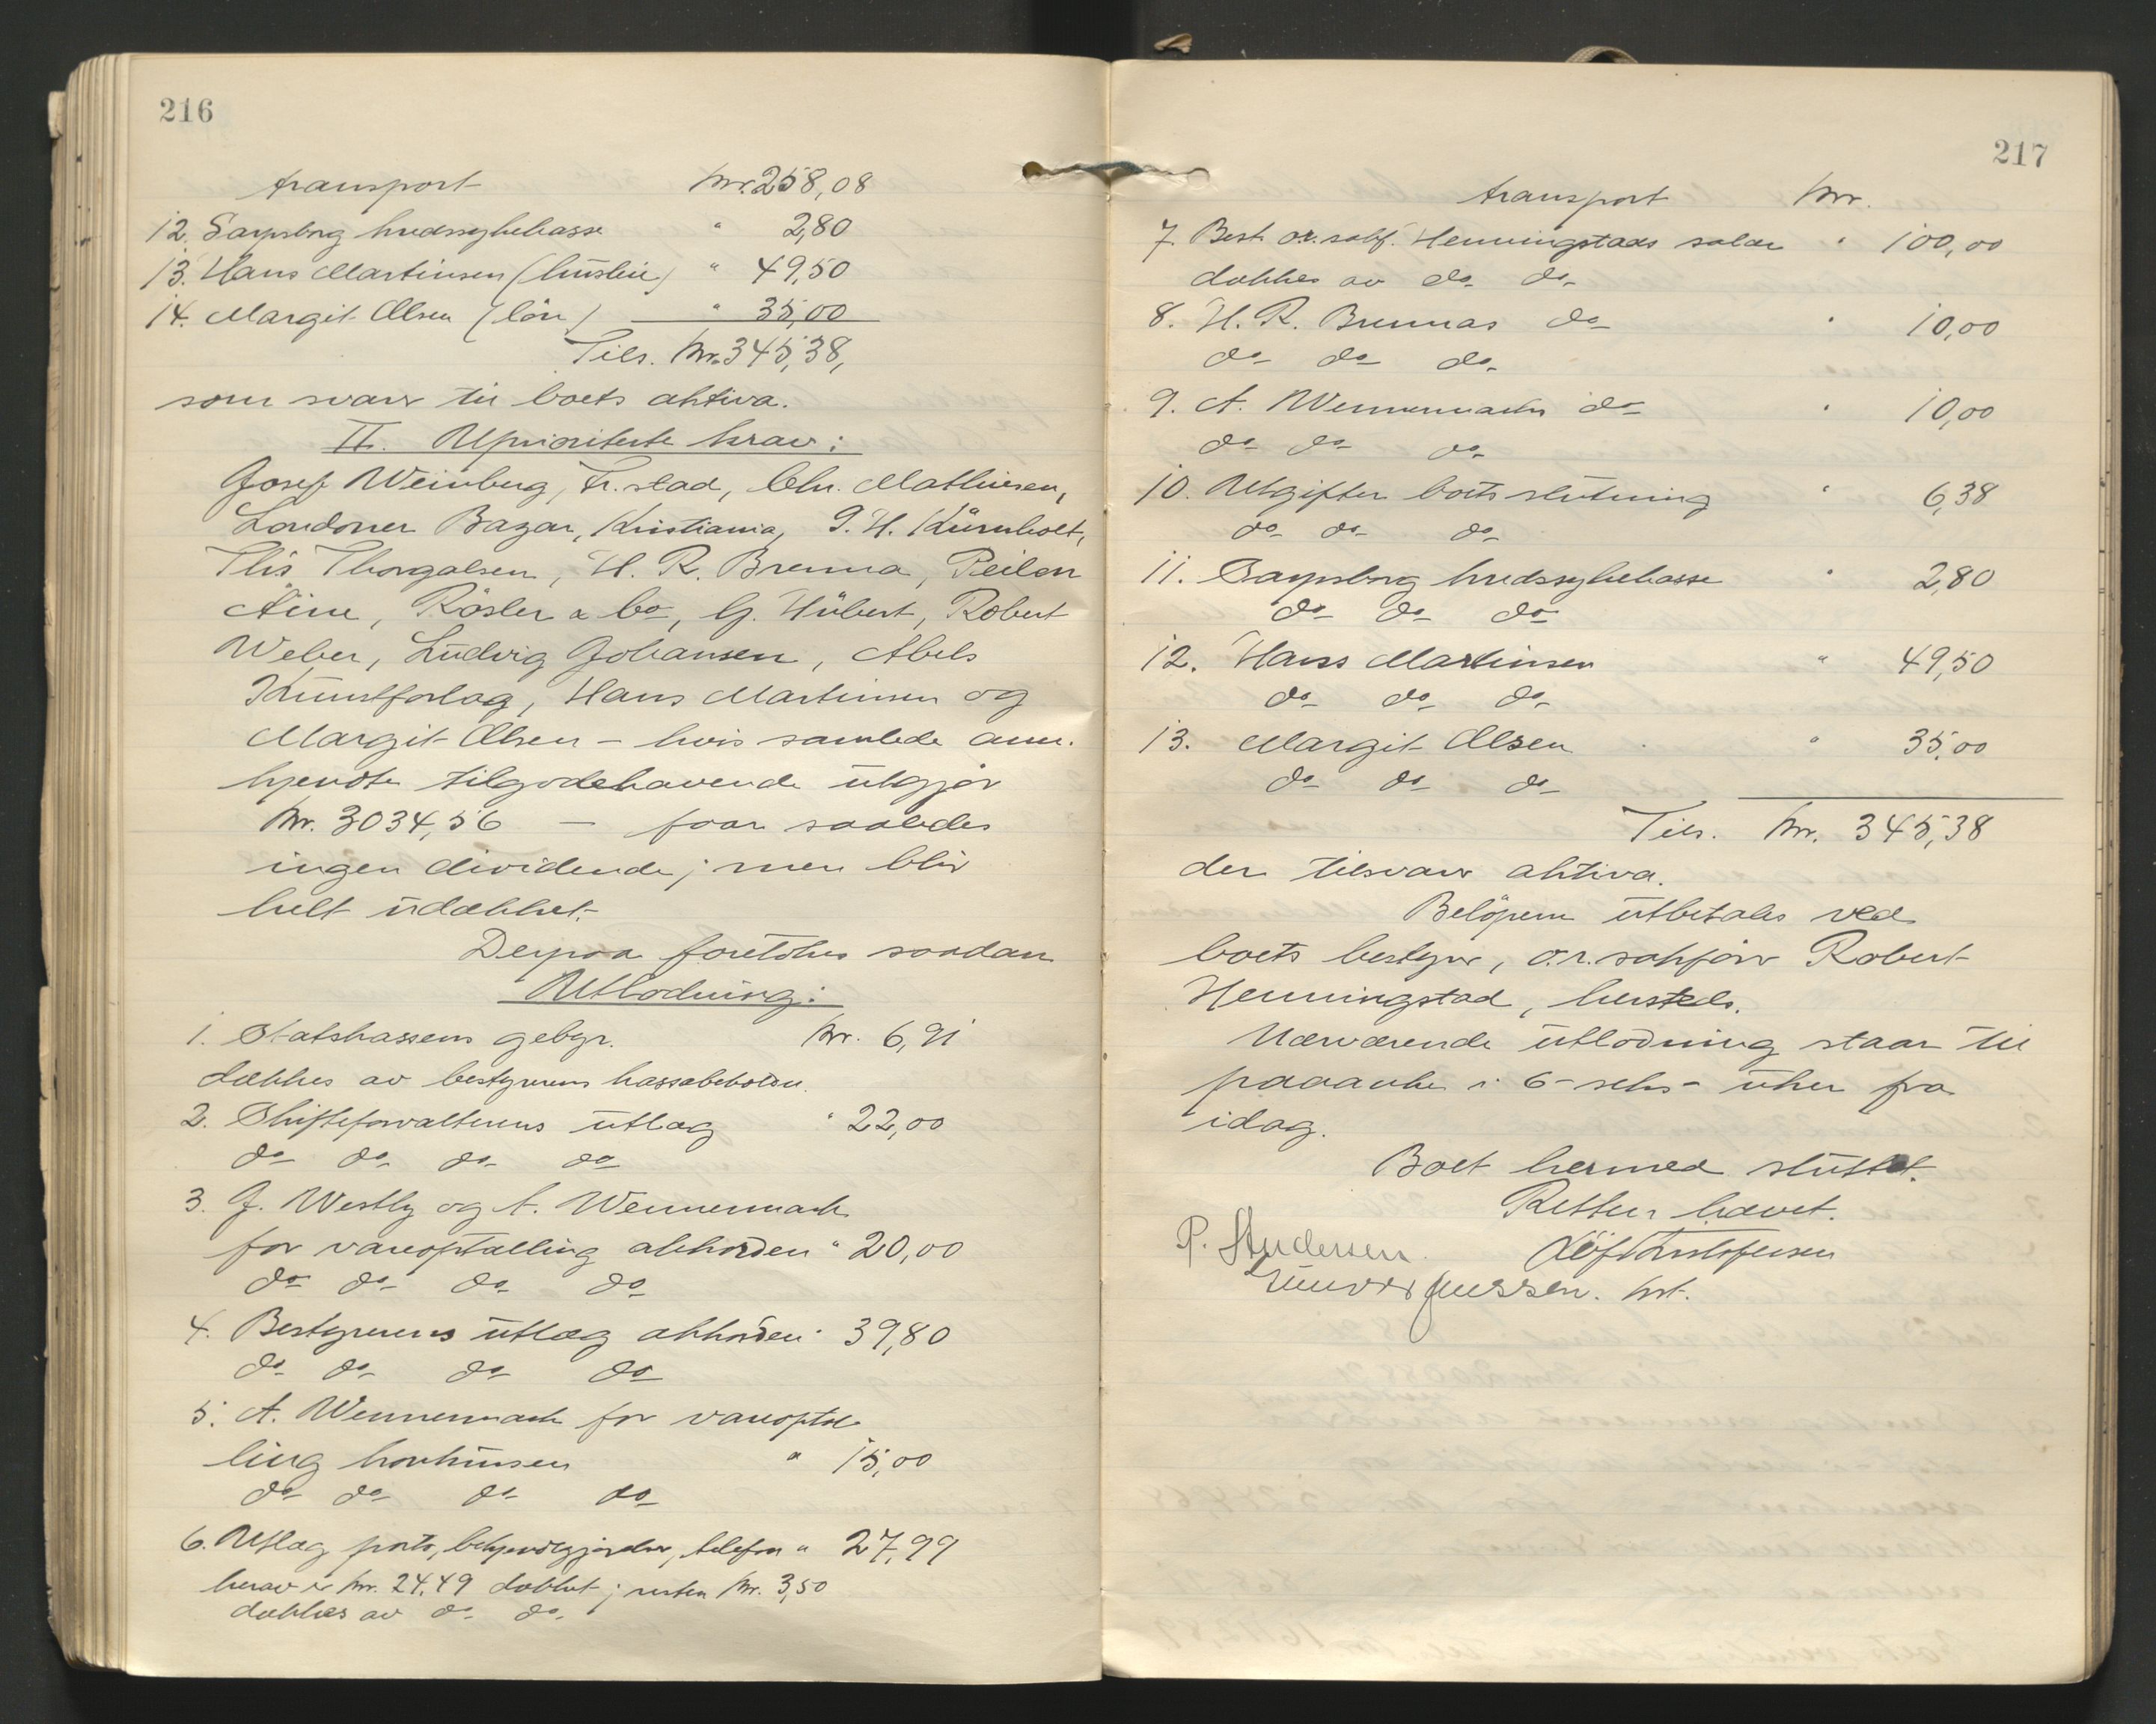 216
transport kr. 258,08
12. Sarpsborg kredssykekasse " 2,80
13. Hans Martinsen (husleie) " 49,50
14. Margit Olsen (lön) " 35,00
Tils. kr. 345,38,
som svarer til boets aktiva.
II. Uprioriterte krav:
Josef Weinberg, Fr.stad, Chr. Mathiesen,
Londoner Bazar, Kristiania, J. H. Kürnholt,
Ths Thorgalsen, H. R. Brenna, Peilen
Aine, Rösler & Co, G. Hübert, Robert
Weber, Ludvig Johansen, Abels
Kunstforlag, Hans Martinsen og
Margit Olsen – hvis samlede aner-
kjendte tilgodehavende utgjör
kr. 3034,56 – faar saaledes
ingen dividende; men blir
helt udækket.
Derpaa foretokes saadan
Utlodning:
1. Statskassens gebyr. kr. 6,91
dækkes av bestyrerens kassabeholdn.
2. Skifteforvalterens utlæg " 22,00
do do do do
3. J. Westly og A. Wennemach
for vareoptælling akkorden " 20,00
do do do do
4. Bestyrerens utlæg akkorden " 39,80
do do do do
5. A. Wennemach for vareoptæl
ling konkursen " 15,00
do do do do
6. Utlæg porto, bekjendtgjörelser, telefon " 27,99
herav er kr. 24,49 dækket; resten kr. 3,50
dækkes av do do.
217
transport kr.
7. Best. o.r.sakf. Henningstads salær " 100,00
dækkes av do do
8. H. R. Brennas do " 10,00
do do do
9. A. Wennemachs do " 10,00
do do do
10. Utgifter boets slutning " 6,38
do do do
11. Sarpsborg kredssykekasse " 2,80
do do do
12. Hans Martinsen " 49,50
do do do
13. Margit Olsen " 35,00
do do do
Tils. kr. 345,38
der tilsvarer aktiva.
Belöpene utbetales ved
boets bestyrer, o.r.sakförer Robert
Henningstad, hersteds.
Nærværende utlodning staar til
paaanke i 6 – seks – uker fra
idag.
Boet hermed sluttet.
Retten hævet.
P. Andersen. Kristofersen